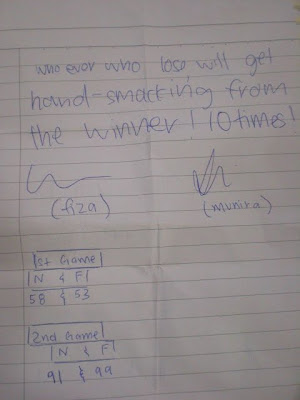 who ever who lose will get
hand-smacking from
the winner! 10 times!
(fiza) (munira)
1st Game
N & F
58 & 53
2nd Game
N & F
91 & 99